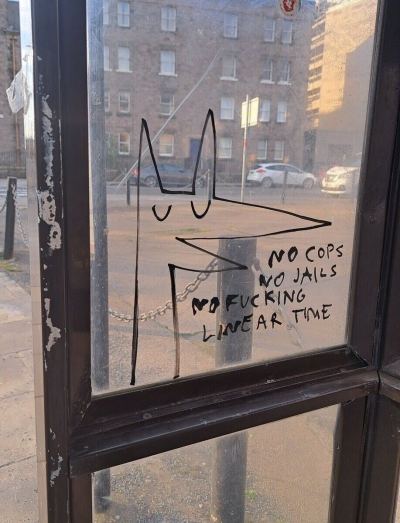 NO COPS
NO JAILS
NO FUCKING
LINEAR TIME